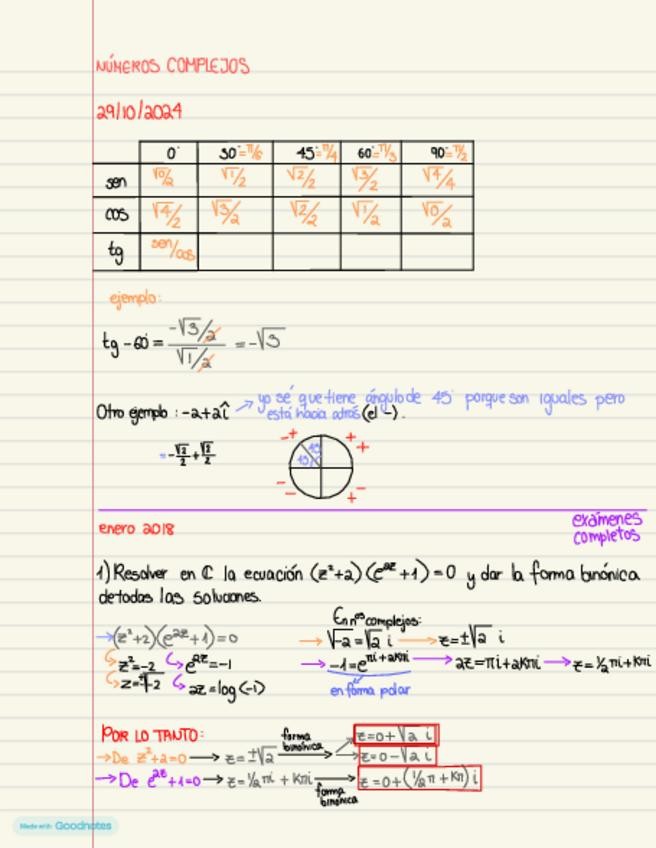 NÚMEROS COMPLEJOS
29/10/2024
0° 30°=π/6 45°=π/4 60°=π/3 90°=π/2
sen √0/2 √1/2 √2/2 √3/2 √4/4
cos √4/2 √3/2 √2/2 √1/2 √0/2
tg sen/cos
ejemplo:
tg -60° = (-√3/2)/(√1/2) = -√3
Otro ejemplo: -2+2î → yo sé que tiene ángulo de 45° porque son iguales pero
está hacia atrás (el -).
= -√2/2 + √2/2
-+ ++
45
45
-- +-
exámenes
completos
enero 2018
1) Resolver en ℂ la ecuación (z²+2)(e^2z+1)=0 y dar la forma binónica
de todas las soluciones.
En nºs complejos:
→ (z²+2)(e^2z+1)=0 → √-2=√2 i → z=±√2 i
z²=-2 e^2z=-1 → -1=e^πi+2kπi → 2z=πi+2kπi → z=½πi+kπi
z=±√-2 2z=log(-1) en forma polar
POR LO TANTO:
→ De z²+2=0 → z=±√2 forma binónica → z=0+√2 i
→ z=0-√2 i
→ De e^2z+1=0 → z=½πi+kπi → forma binónica z=0+(½π+kπ)i
Made with Goodnotes